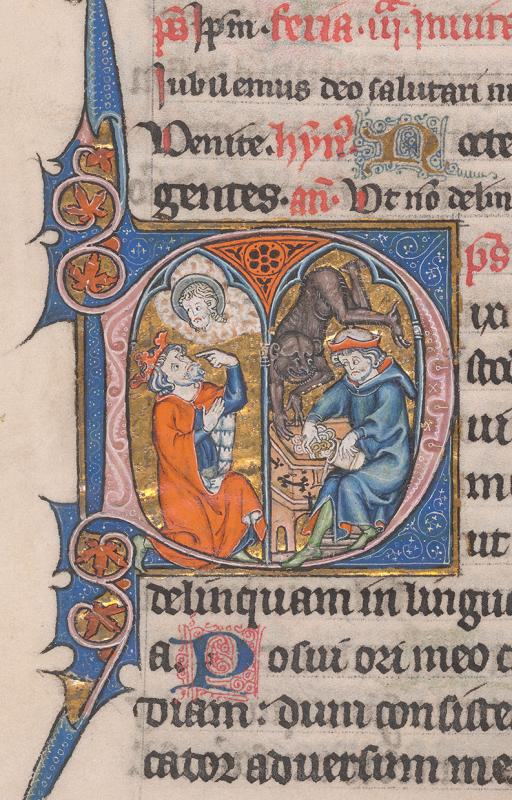 p̄s Ip̄m. feria. iii. Inuita
Iubilemus deo salutari n
Venite. hȳn9. N octe
gentes. an̄. Vt nō delin
p̄s
ixi
stod
ui
m
ut
delinquam in lingua
a P osui ori meo c
diam: dum consiste
cator aduersum me